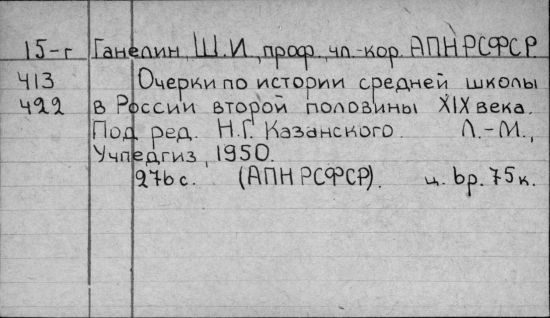 15-г Ганелин, Ш.И., проф., чл.-кор. АПН РСФСР
413 Очерки по истории средней школы
422 в России второй половины XIX века.
Под ред. Н.Г. Казанского. Л.-М.,
Учпедгиз, 1950.
276 с. (АПН РСФСР). ц. 6р. 75к.